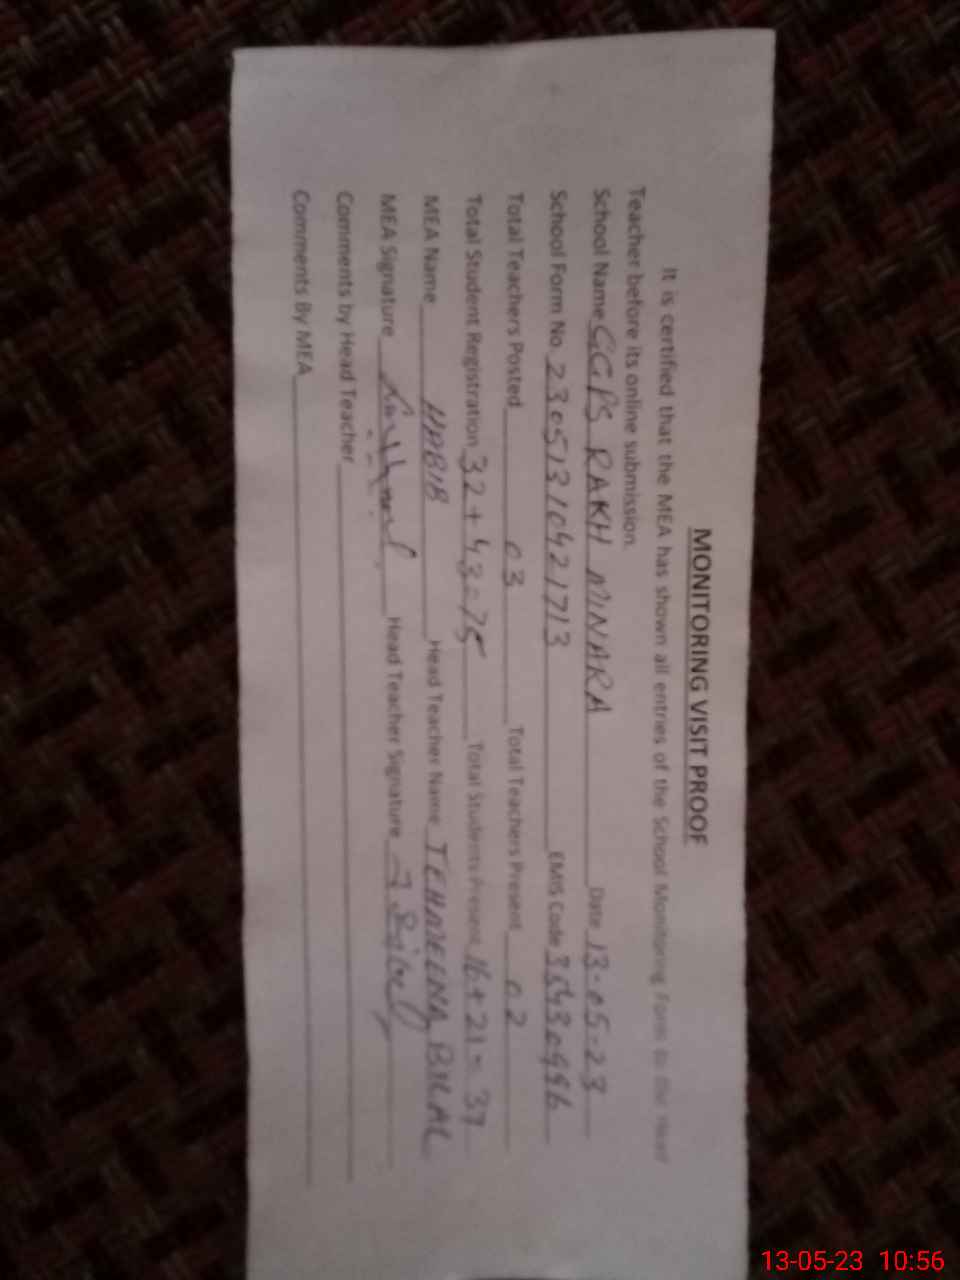 MONITORING VISIT PROOF
It is certified that the MEA has shown all entries of the School Monitoring Form to the Head
Teacher before its online submission.
School Name GGPS RAKH MINARA Date 13-05-23
School Form No 23051310421713 EMIS Code
Total Teachers Posted 03 Total Teachers Present 02
Total Student Registration 32+43=75 Total Students Present 16+21=37
MEA Name HABIB Head Teacher Name TEHMEENA BILAL
MEA Signature Head Teacher Signature
Comments by Head Teacher
Comments By MEA
13-05-23 10:56